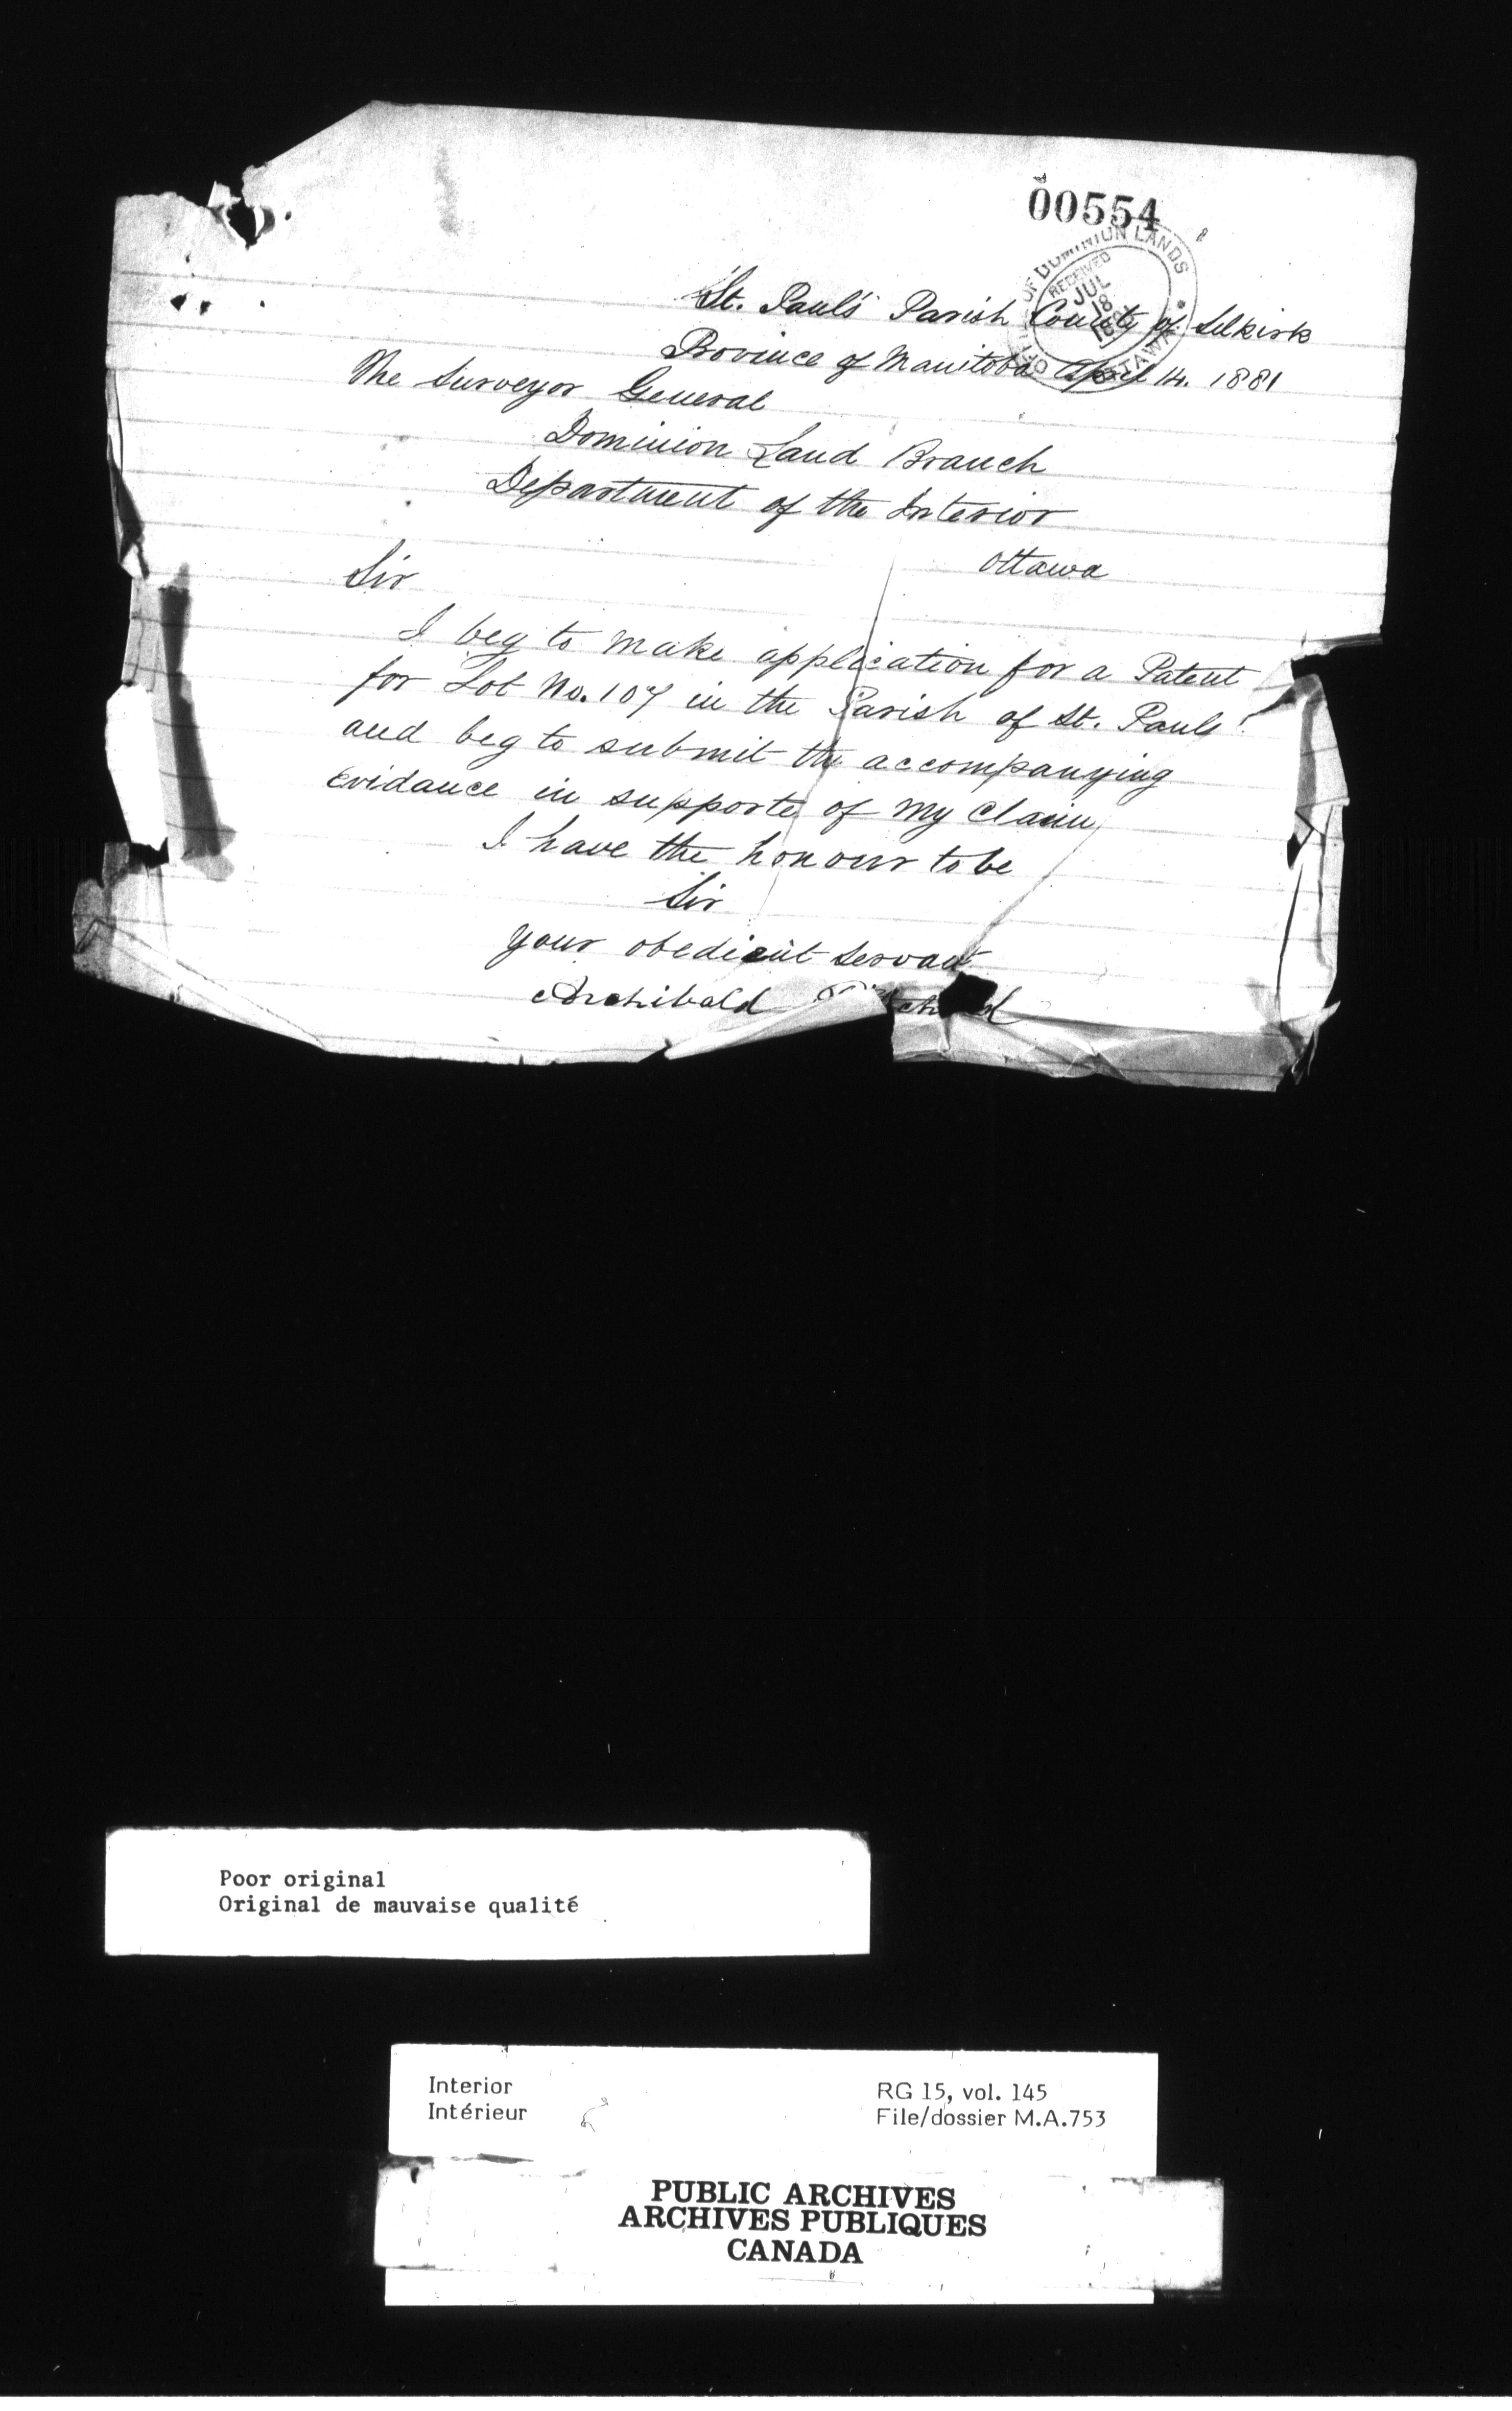 00554
OF DOMINION LANDS
RECEIVED
JUL
18
1881
OTTAWA
St. Paul's Parish County of Selkirk
Province of Manitoba April 14. 1881
The Surveyor General
Dominion Land Branch
Department of the Interior
Ottawa
Sir
I beg to make application for a Patent
for Lot No. 107 in the Parish of St. Pauls
and beg to submit the accompanying
Evidance in supporte of my Claim
I have the honour to be
Sir
your obedient servant
Archibald
Poor original
Original de mauvaise qualité
Interior
Intérieur
RG 15, vol. 145
File/dossier M.A.753
PUBLIC ARCHIVES
ARCHIVES PUBLIQUES
CANADA